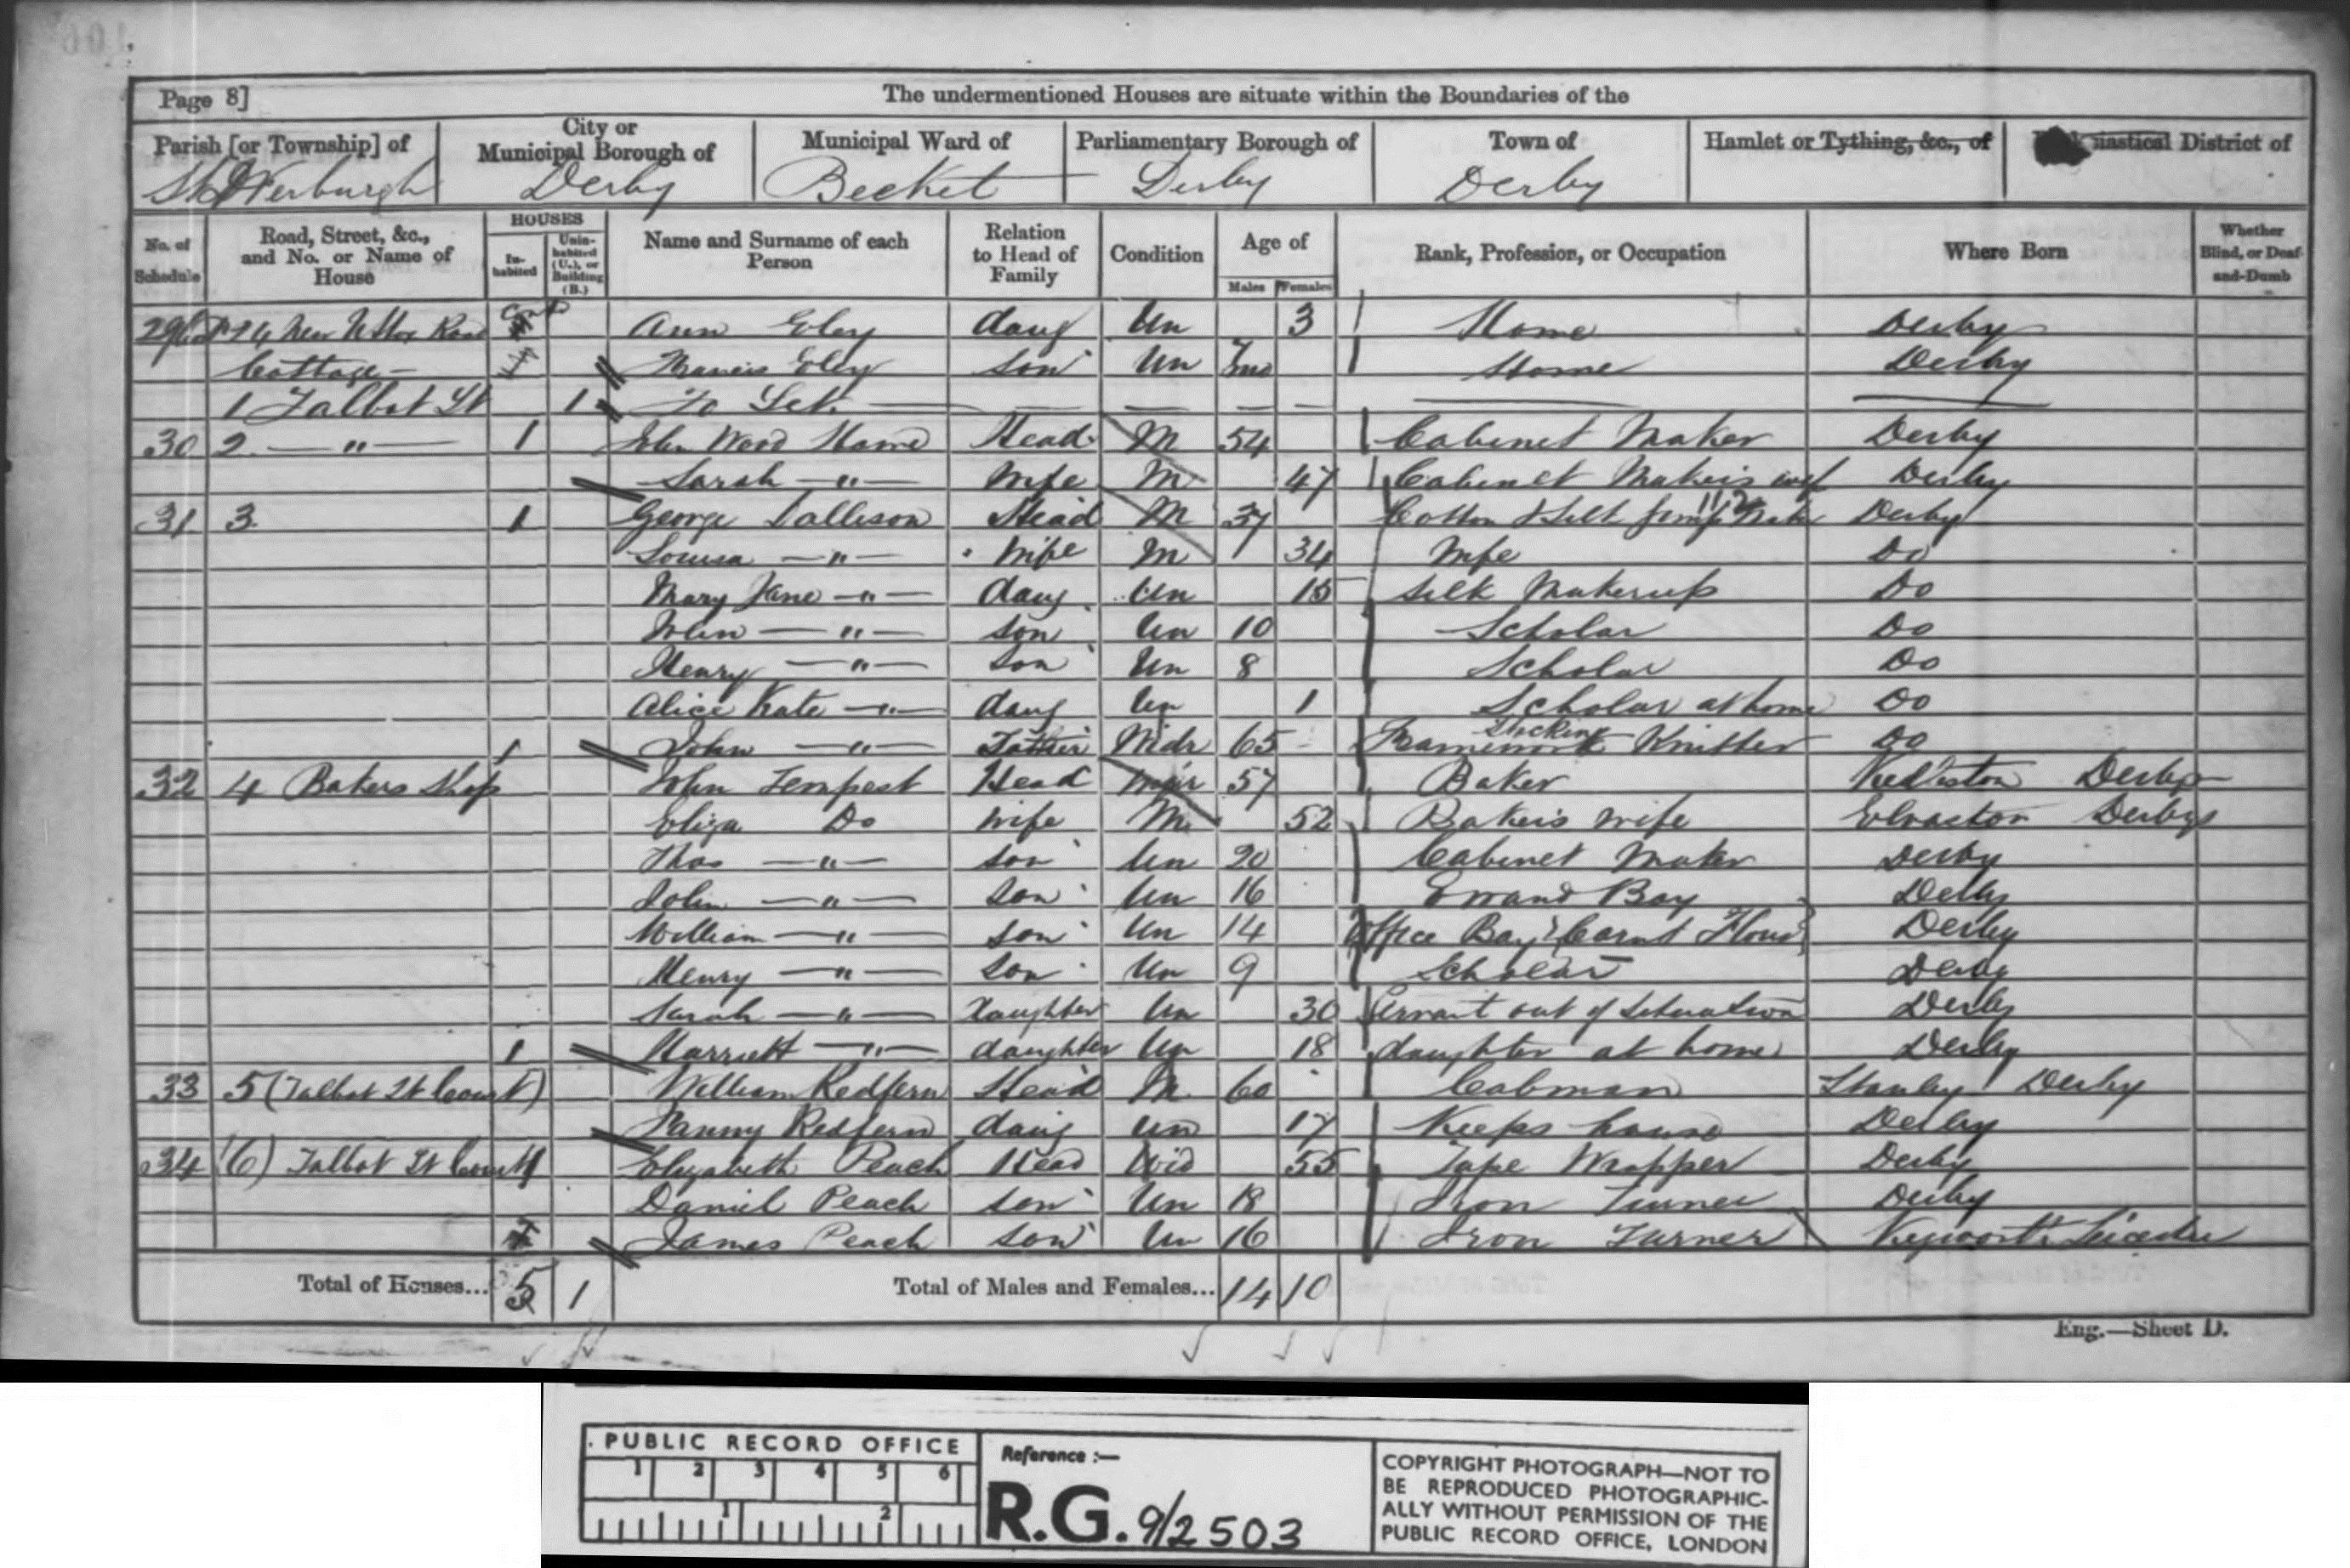 Page 8]
The undermentioned Houses are situate within the Boundaries of the
Parish [or Township] of City or Municipal Borough of Municipal Ward of Parliamentary Borough of Town of Hamlet or Tything, &c., of District of
St Werburgh Derby Becket Derby Derby
No. of Schedule Road, Street, &c., and No. or Name of House HOUSES In-habited Unin-habited (U.), or Building (B.) Name and Surname of each Person Relation to Head of Family Condition Age of Males Females Rank, Profession, or Occupation Where Born Whether Blind, or Deaf-and-Dumb
29 New Road Ann Eley daug Un 3 Home Derby
Cottage Francis Eley son Un 7mo Home Derby
1 Talbot St 1 To Let
30 2 — " — 1 John Wood Head M 54 Cabinet Maker Derby
Sarah — " — Wife M 47 Cabinet Makers wife Derby
31 3 1 George Dallison Head M 37 Cotton & Silk Derby
Louisa — " — Wife M 34 Wife Do
Mary Jane — " — daug Un 15 Silk Makerup Do
John — " — son Un 10 Scholar Do
Henry — " — son Un 8 Scholar Do
Alice Kate — " — daug Un 1 Scholar at home Do
1 John — " — Father Widr 65 Framework Stocking Knitter Do
32 4 Bakers Shop John Tempest Head 57 Baker Kedleston Derby
Eliza Do Wife M 52 Bakers Wife Elvaston Derbys
Thos — " — son Un 20 Cabinet Maker Derby
John — " — son Un 16 Errand Boy Derby
William — " — son Un 14 Office Boy Derby
Henry — " — son Un 9 Scholar Derby
Sarah — " — daughter Un 30 Servant out of Situation Derby
1 Harriett — " — daughter Un 18 daughter at home Derby
33 5 (Talbot St Court) William Redfern Head M 60 Cabman Stanley Derby
Fanny Redfern daug Un 17 Keeps house Derby
34 (6) Talbot St Court Elizabeth Peach Head Wid 55 Tape Wrapper Derby
Daniel Peach son Un 18 Iron Turner Derby
James Peach son Un 16 Iron Turner Kegworth Leicester
Total of Houses... 5 1 Total of Males and Females... 14 10
Eng.—Sheet D.
PUBLIC RECORD OFFICE
1 2 3 4 5 6
1 2
Reference :—
R.G. 9/2503
COPYRIGHT PHOTOGRAPH—NOT TO
BE REPRODUCED PHOTOGRAPHIC-
ALLY WITHOUT PERMISSION OF THE
PUBLIC RECORD OFFICE, LONDON